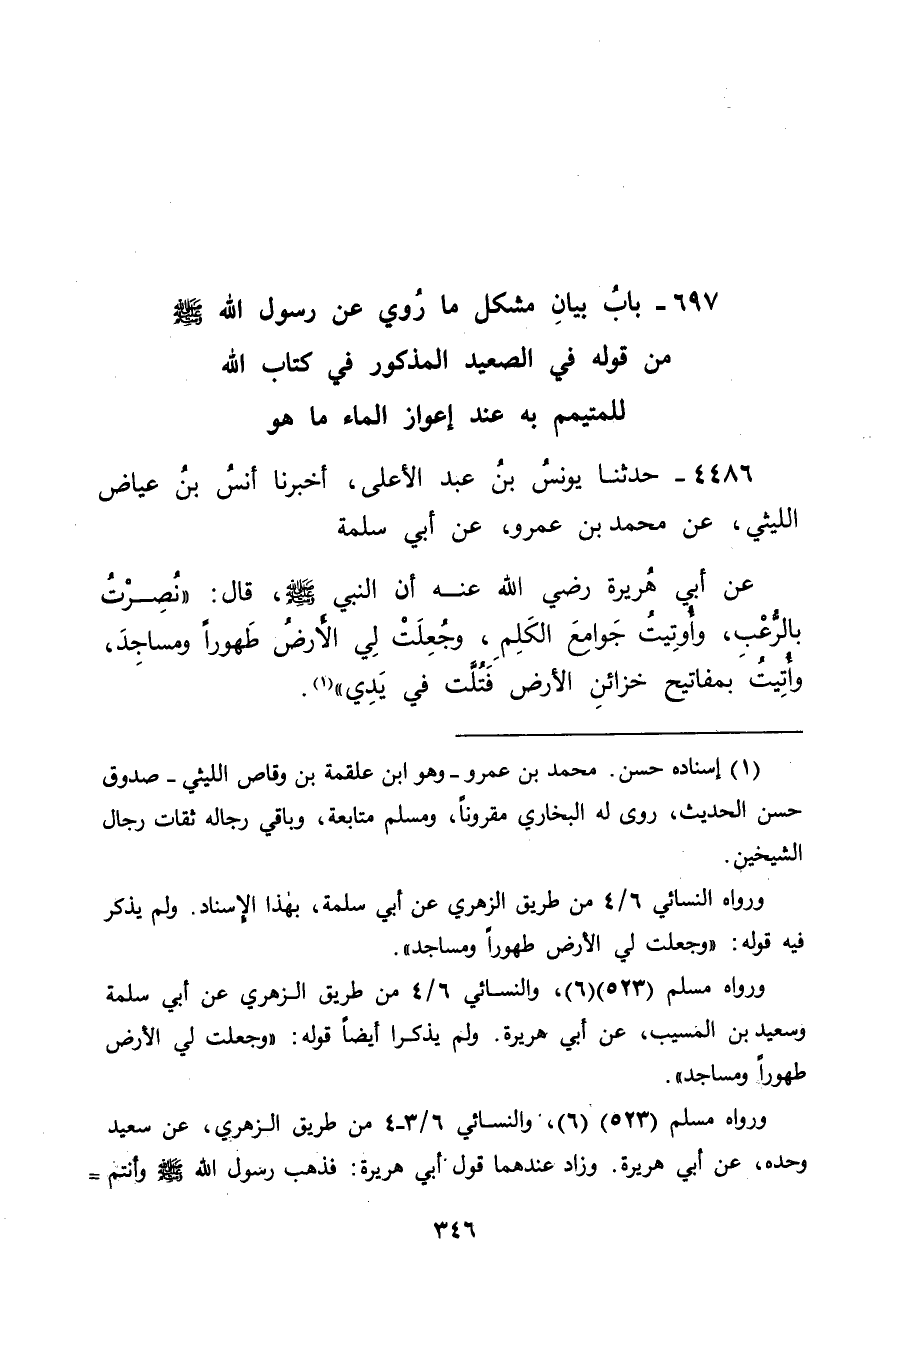 ٦٩٧ ـ بابُ بيانِ مشكل ما رُوي عن رسول الله ﷺ
من قوله في الصعيد المذكور في كتاب الله
للمتيمم به عند إعواز الماء ما هو
٤٤٨٦ ـ حدثنا يونسُ بنُ عبد الأعلى، أخبرنا أنسُ بنُ عياض
الليثي، عن محمد بن عمرو، عن أبي سلمة
عن أبي هُريرة رضي الله عنه أن النبي ﷺ، قال: «نُصِرْتُ
بالرُّعْبِ، وأُوتِيتُ جَوامِعَ الكَلِمِ، وجُعِلَتْ لِي الأَرضُ طَهوراً ومساجِدَ،
وأُتِيتُ بمفاتيح خزائنِ الأرض فَتُلَّت في يَدِي»(١).
(١) إسناده حسن. محمد بن عمرو ـ وهو ابن علقمة بن وقاص الليثي ـ صدوق
حسن الحديث، روى له البخاري مقروناً، ومسلم متابعة، وباقي رجاله ثقات رجال
الشيخين.
ورواه النسائي ٤/٦ من طريق الزهري عن أبي سلمة، بهٰذا الإسناد. ولم يذكر
فيه قوله: «وجعلت لي الأرض طهوراً ومساجد».
ورواه مسلم (٥٢٣)(٦)، والنسائي ٤/٦ من طريق الزهري عن أبي سلمة
وسعيد بن المسيب، عن أبي هريرة. ولم يذكرا أيضاً قوله: «وجعلت لي الأرض
طهوراً ومساجد».
ورواه مسلم (٥٢٣) (٦)، والنسائي ٣/٦ـ٤ من طريق الزهري، عن سعيد
وحده، عن أبي هريرة. وزاد عندهما قول أبي هريرة: فذهب رسول الله ﷺ وأنتم =
٣٤٦